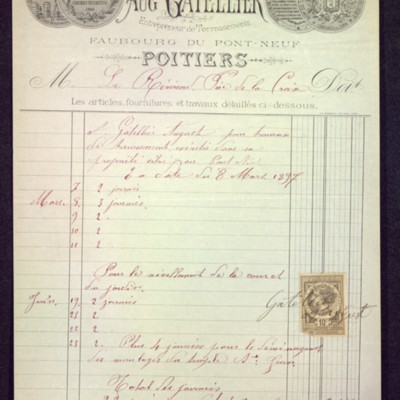 AUG GATELLIER
Entrepreneur de Terrassements
FAUBOURG DU PONT-NEUF
POITIERS
M. Le Révérend Père de la Croix Doit
Les articles, fournitures, et travaux détaillés ci-dessous.
A Gatellier Auguste pour travaux
de terrassement exécuté dans sa
propriété
à date du 8 Mars 1897
7 2 journées
Mars 8 3 journées
9 2
10 2
11 2
Pour le nivellement de la cour et
du jardin
Juin 19 2 journées
21 2
22 2
23 2 Plus 4 journées pour le déménagement
des moulages du temple St Jean
Total des journées